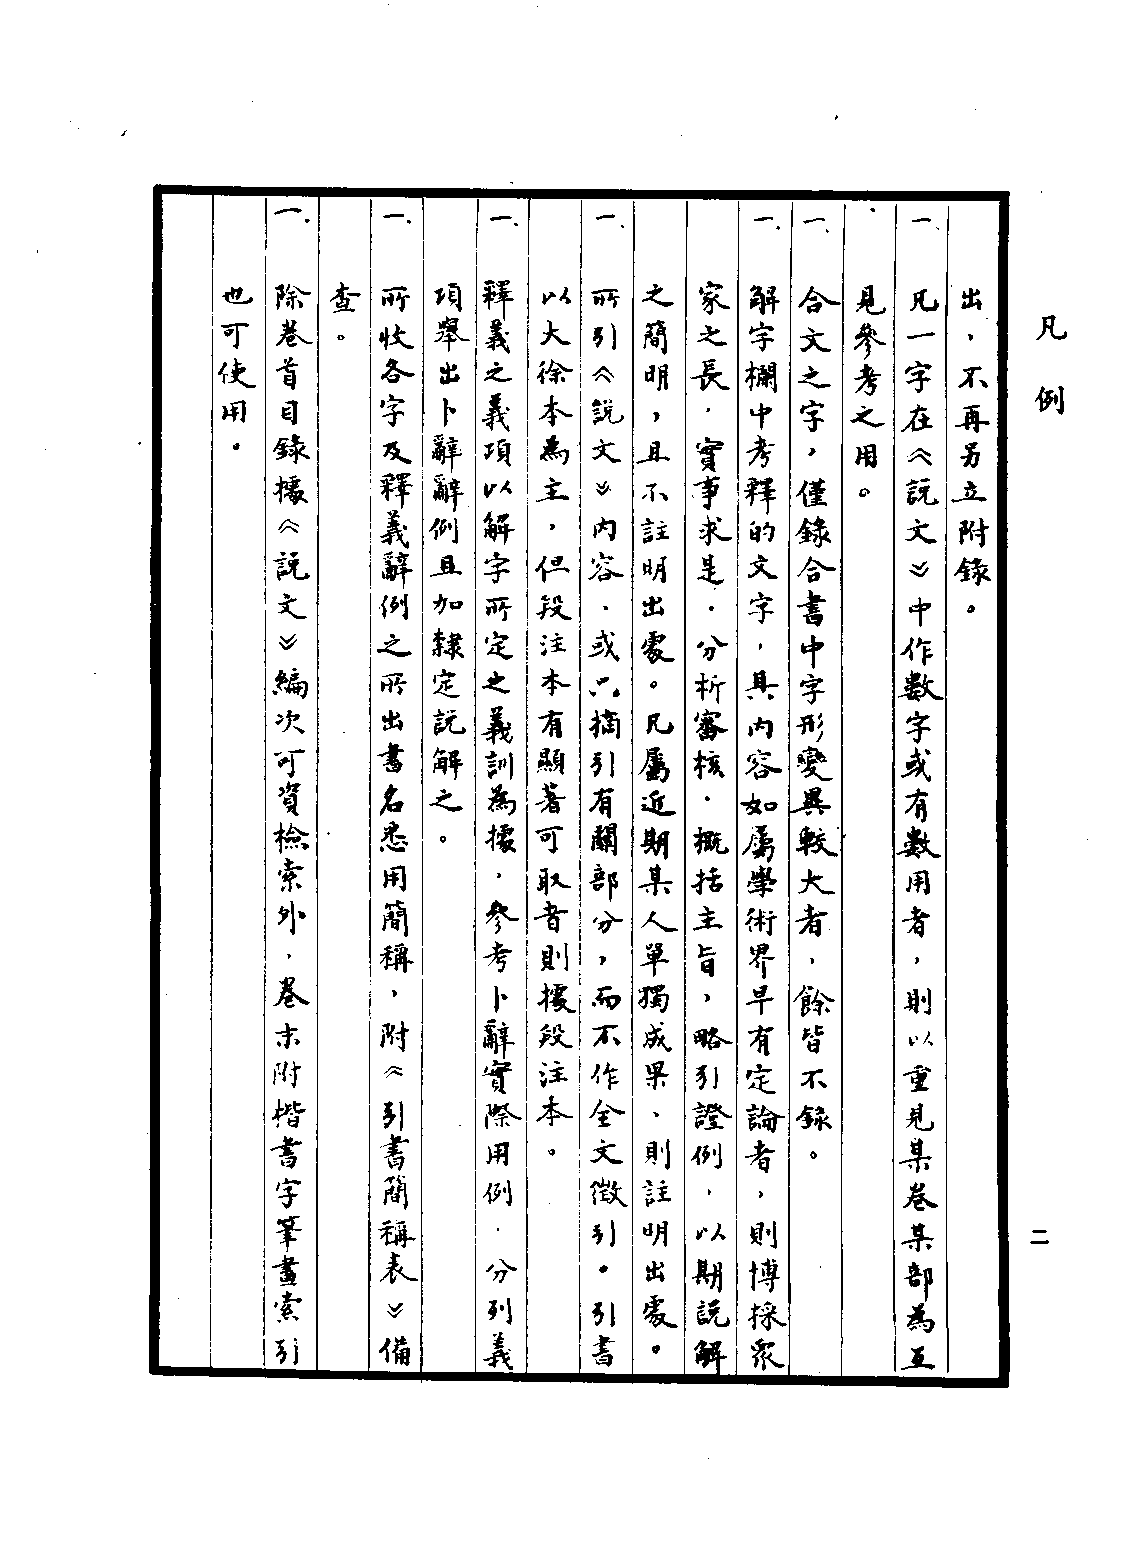 凡例
二
出，不再另立附錄。
一、凡一字在《説文》中作數字或有數用者，則以重見某卷某部為互
見參考之用。
一、合文之字，僅錄合書中字形變異較大者，餘皆不錄。
一、解字欄中考釋的文字，其内容如屬學術界早有定論者，則博採眾
家之長，實事求是，分析審核，概括主旨，略引證例，以期説解
之簡明，且不註明出處。凡屬近期某人單獨成果、則註明出處。
一、所引《説文》内容，或只摘引有關部分，而不作全文徵引。引書
以大徐本為主，但段注本有顯著可取者則據段注本。
一、釋義之義項以解字所定之義訓為據，參考卜辭實際用例，分列義
項舉出卜辭辭例且加隸定説解之。
一、所收各字及釋義辭例之所出書名悉用簡稱，附《引書簡稱表》備
查。
一、除卷首目錄據《説文》編次可資檢索外，卷末附楷書字筆畫索引
也可使用。